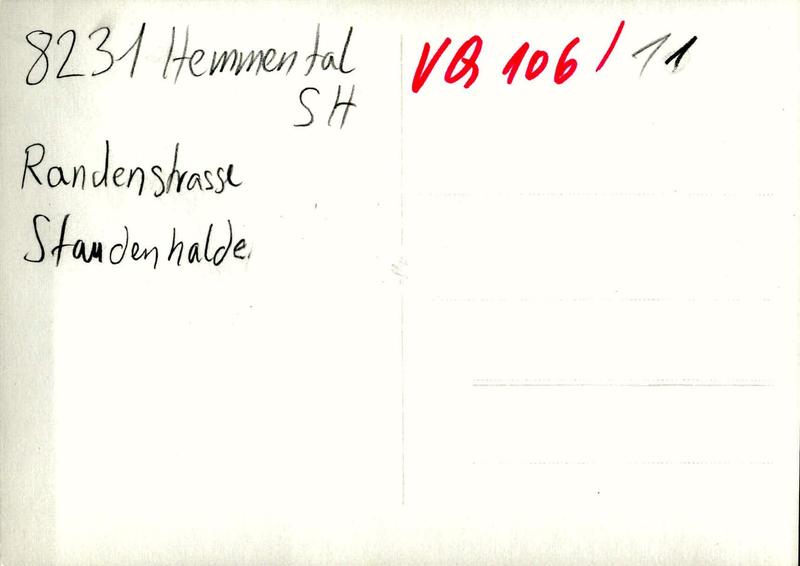 8231 Hemmental
SH
Randenstrasse
Staudenhalde.
VQ 106 / 11